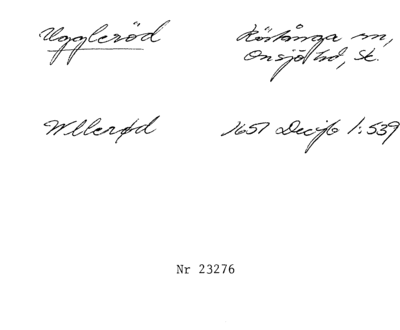 Uggleröd Röstånga sn,
Onsjö hd, Sk.
Wllerød 1651 Decifb 1:539
Nr 23276